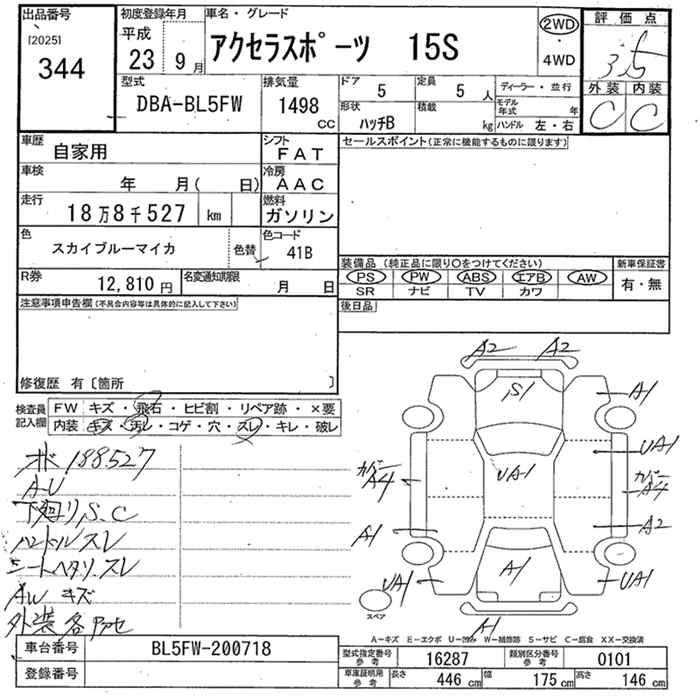 出品番号
[2025]
344
初度登録年月
平成
23 9月
車名・グレード
アクセラスポーツ 15S
2WD
・
4WD
評価点
3.5
外装 内装
C C
型式
DBA-BL5FW
排気量
1498
CC
ドア
5
定員
5 人
形状
ハッチB
積載
kg
ディーラー・並行
モデル年式 年
ハンドル 左・右
車歴
自家用
シフト
FAT
車検
年 月( 日)
冷房
AAC
走行
18万8千527 km
燃料
ガソリン
色
スカイブルーマイカ
色替
色コード
41B
R券
12,810円
名変通知期限
月 日
セールスポイント(正常に機能するものに限ります)
装備品 (純正品に限り○をつけてください)
新車保証書
PS PW ABS エアB AW
SR ナビ TV カワ
有・無
後日品
注意事項申告欄(不具合内容等は具体的に記入して下さい)
修復歴 有〔箇所 〕
検査員記入欄
FW キズ・飛石・ヒビ割・リペア跡・×要
内装 キズ・汚レ・コゲ・穴・スレ・キレ・破レ
188.527
A・U
下廻りS.C
ハンドルスレ
シートヘタリ.スレ
AW キズ
外装 各アクセ
A2 A2
S1
A1
UA1
UA1
カバー
A4
カバー
A4
A1
A2
UA1
A1
UA1
A1
スペア
A-キズ E-エクボ U-凹み W-補修跡 S-サビ C-腐食 XX-交換済
車台番号
BL5FW-200718
登録番号
型式指定番号
参考
16287
類別区分番号
参考
0101
車庫証明用
参考
長さ
446 cm
幅
175 cm
高さ
146 cm